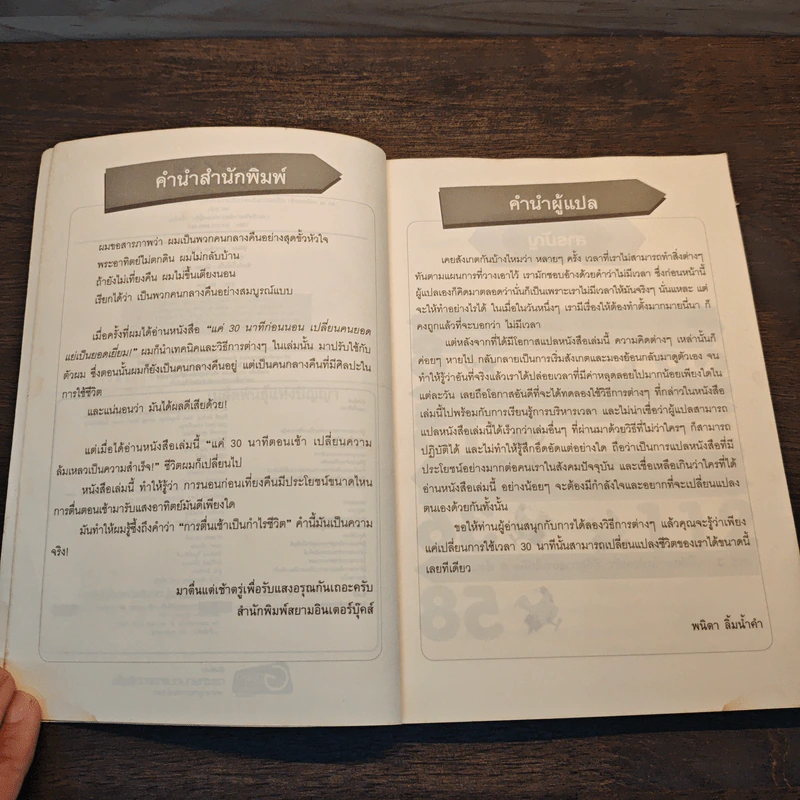 คำนำสำนักพิมพ์
ผมขอสารภาพว่า ผมเป็นพวกคนกลางคืนอย่างสุดขั้วหัวใจ
พระอาทิตย์ไม่ตกดิน ผมไม่กลับบ้าน
ถ้ายังไม่เที่ยงคืน ผมไม่ขึ้นเตียงนอน
เรียกได้ว่า เป็นพวกคนกลางคืนอย่างสมบูรณ์แบบ
เมื่อครั้งที่ผมได้อ่านหนังสือ "แค่ 30 นาทีก่อนนอน เปลี่ยนคนยอด
แย่เป็นยอดเยี่ยม!" ผมก็นำเทคนิคและวิธีการต่างๆ ในเล่มนั้น มาปรับใช้กับ
ตัวผม ซึ่งตอนนั้นผมก็ยังเป็นคนกลางคืนอยู่ แต่เป็นคนกลางคืนที่มีศิลปะใน
การใช้ชีวิต
และแน่นอนว่า มันได้ผลดีเสียด้วย!
แต่เมื่อได้อ่านหนังสือเล่มนี้ "แค่ 30 นาทีตอนเช้า เปลี่ยนความ
ล้มเหลวเป็นความสำเร็จ!" ชีวิตผมก็เปลี่ยนไป
หนังสือเล่มนี้ ทำให้รู้ว่า การนอนก่อนเที่ยงคืนมีประโยชน์ขนาดไหน
การตื่นตอนเช้ามารับแสงอาทิตย์มันดีเพียงใด
มันทำให้ผมรู้ซึ้งถึงคำว่า "การตื่นเช้าเป็นกำไรชีวิต" คำนี้มันเป็นความ
จริง!
มาตื่นแต่เช้าตรู่เพื่อรับแสงอรุณกันเถอะครับ
สำนักพิมพ์สยามอินเตอร์บุ๊คส์
คำนำผู้แปล
เคยสังเกตกันบ้างไหมว่า หลายๆ ครั้ง เวลาที่เราไม่สามารถทำสิ่งต่างๆ
ทันตามแผนการที่วางเอาไว้ เรามักชอบอ้างด้วยคำว่าไม่มีเวลา ซึ่งก่อนหน้านี้
ผู้แปลเองก็คิดมาตลอดว่านั่นก็เป็นเพราะเราไม่มีเวลาให้มันจริงๆ นั่นแหละ แต่
จะให้ทำอย่างไรได้ ในเมื่อในวันหนึ่งๆ เรามีเรื่องให้ต้องทำตั้งมากมายนี่นา ก็
คงถูกแล้วที่จะบอกว่า ไม่มีเวลา
แต่หลังจากที่ได้มีโอกาสแปลหนังสือเล่มนี้ ความคิดต่างๆ เหล่านั้นก็
ค่อยๆ หายไป กลับกลายเป็นการเริ่มสังเกตและมองย้อนกลับมาดูตัวเอง จน
ทำให้รู้ว่าอันที่จริงแล้วเราได้ปล่อยเวลาที่มีค่าหลุดลอยไปมากน้อยเพียงใดใน
แต่ละวัน เลยถือโอกาสอันดีที่จะได้ทดลองใช้วิธีการต่างๆ ที่กล่าวในหนังสือ
เล่มนี้ไปพร้อมกับการเรียนรู้การบริหารเวลา และไม่น่าเชื่อว่าผู้แปลสามารถ
แปลหนังสือเล่มนี้ได้เร็วกว่าเล่มอื่นๆ ที่ผ่านมาด้วยวิธีที่ไม่ว่าใครๆ ก็สามารถ
ปฏิบัติได้ และไม่ทำให้รู้สึกอึดอัดแต่อย่างใด ถือว่าเป็นการแปลหนังสือที่มี
ประโยชน์อย่างมากต่อคนเราในสังคมปัจจุบัน และเชื่อเหลือเกินว่าใครที่ได้
อ่านหนังสือเล่มนี้ อย่างน้อยๆ จะต้องมีกำลังใจและอยากที่จะเปลี่ยนแปลง
ตนเองด้วยกันทั้งนั้น
ขอให้ท่านผู้อ่านสนุกกับการได้ลองวิธีการต่างๆ แล้วคุณจะรู้ว่าเพียง
แค่เปลี่ยนการใช้เวลา 30 นาทีนั้นสามารถเปลี่ยนแปลงชีวิตของเราได้ขนาดนี้
เลยทีเดียว
พนิดา ลิ้มน้ำคำ